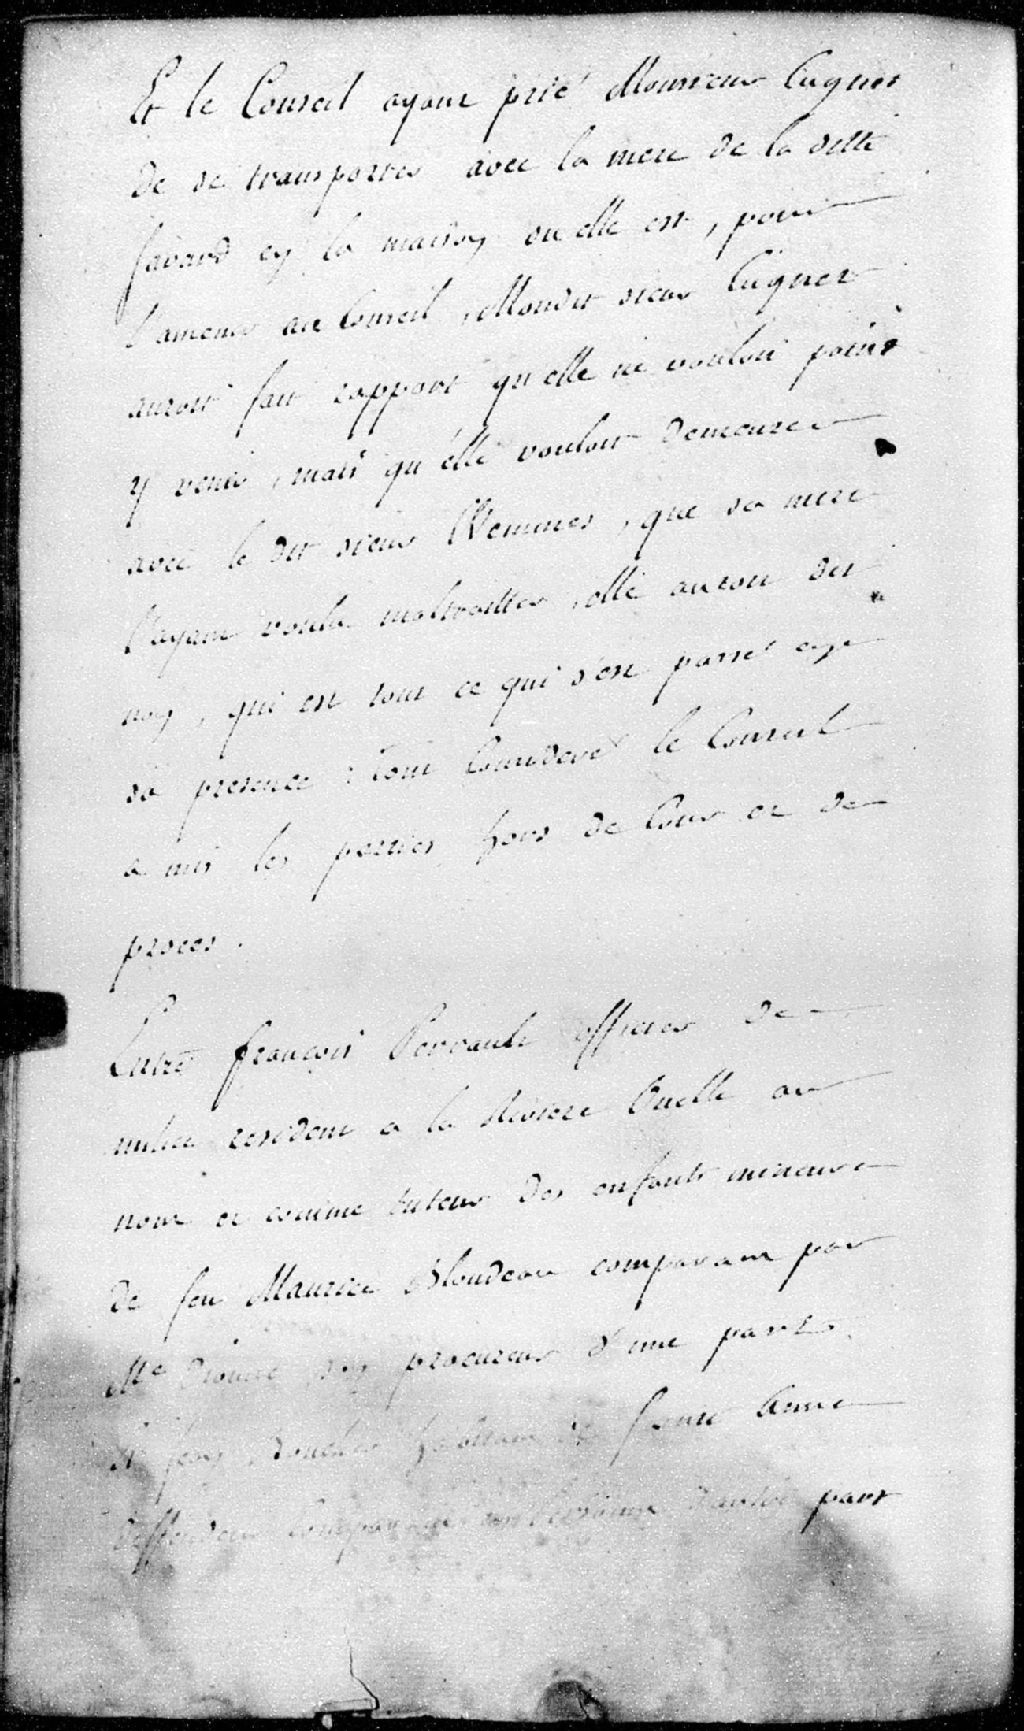 Et le Conseil ayant prié Monsieur Cugnet
de se transporter avec la mere de la ditte
favard en la maison ou elle est, pour
l'amener au Conseil, Mondit sieur Cugnet
auroit fait rapport qu'elle ne vouloit point
y venir, mais qu'elle vouloit demeurer
avec le dit sieur, que sa mere
l'ayant voulu maltraitter, elle auroit dit
non, qui est tout ce qui s'est passé en
sa presence : Tout Consideré le Conseil
a mis les parties hors de Cour et de
proces.
Entre françois Perrault officier de
milice residant a la Riviere Ouelle au
nom et comme tuteur des enfants mineurs
de feu Maurice Blondeau comparant par
Me son procureur d'une part
et jean habitant de sainte Anne
deffendeur Comparant en personne d'autre part